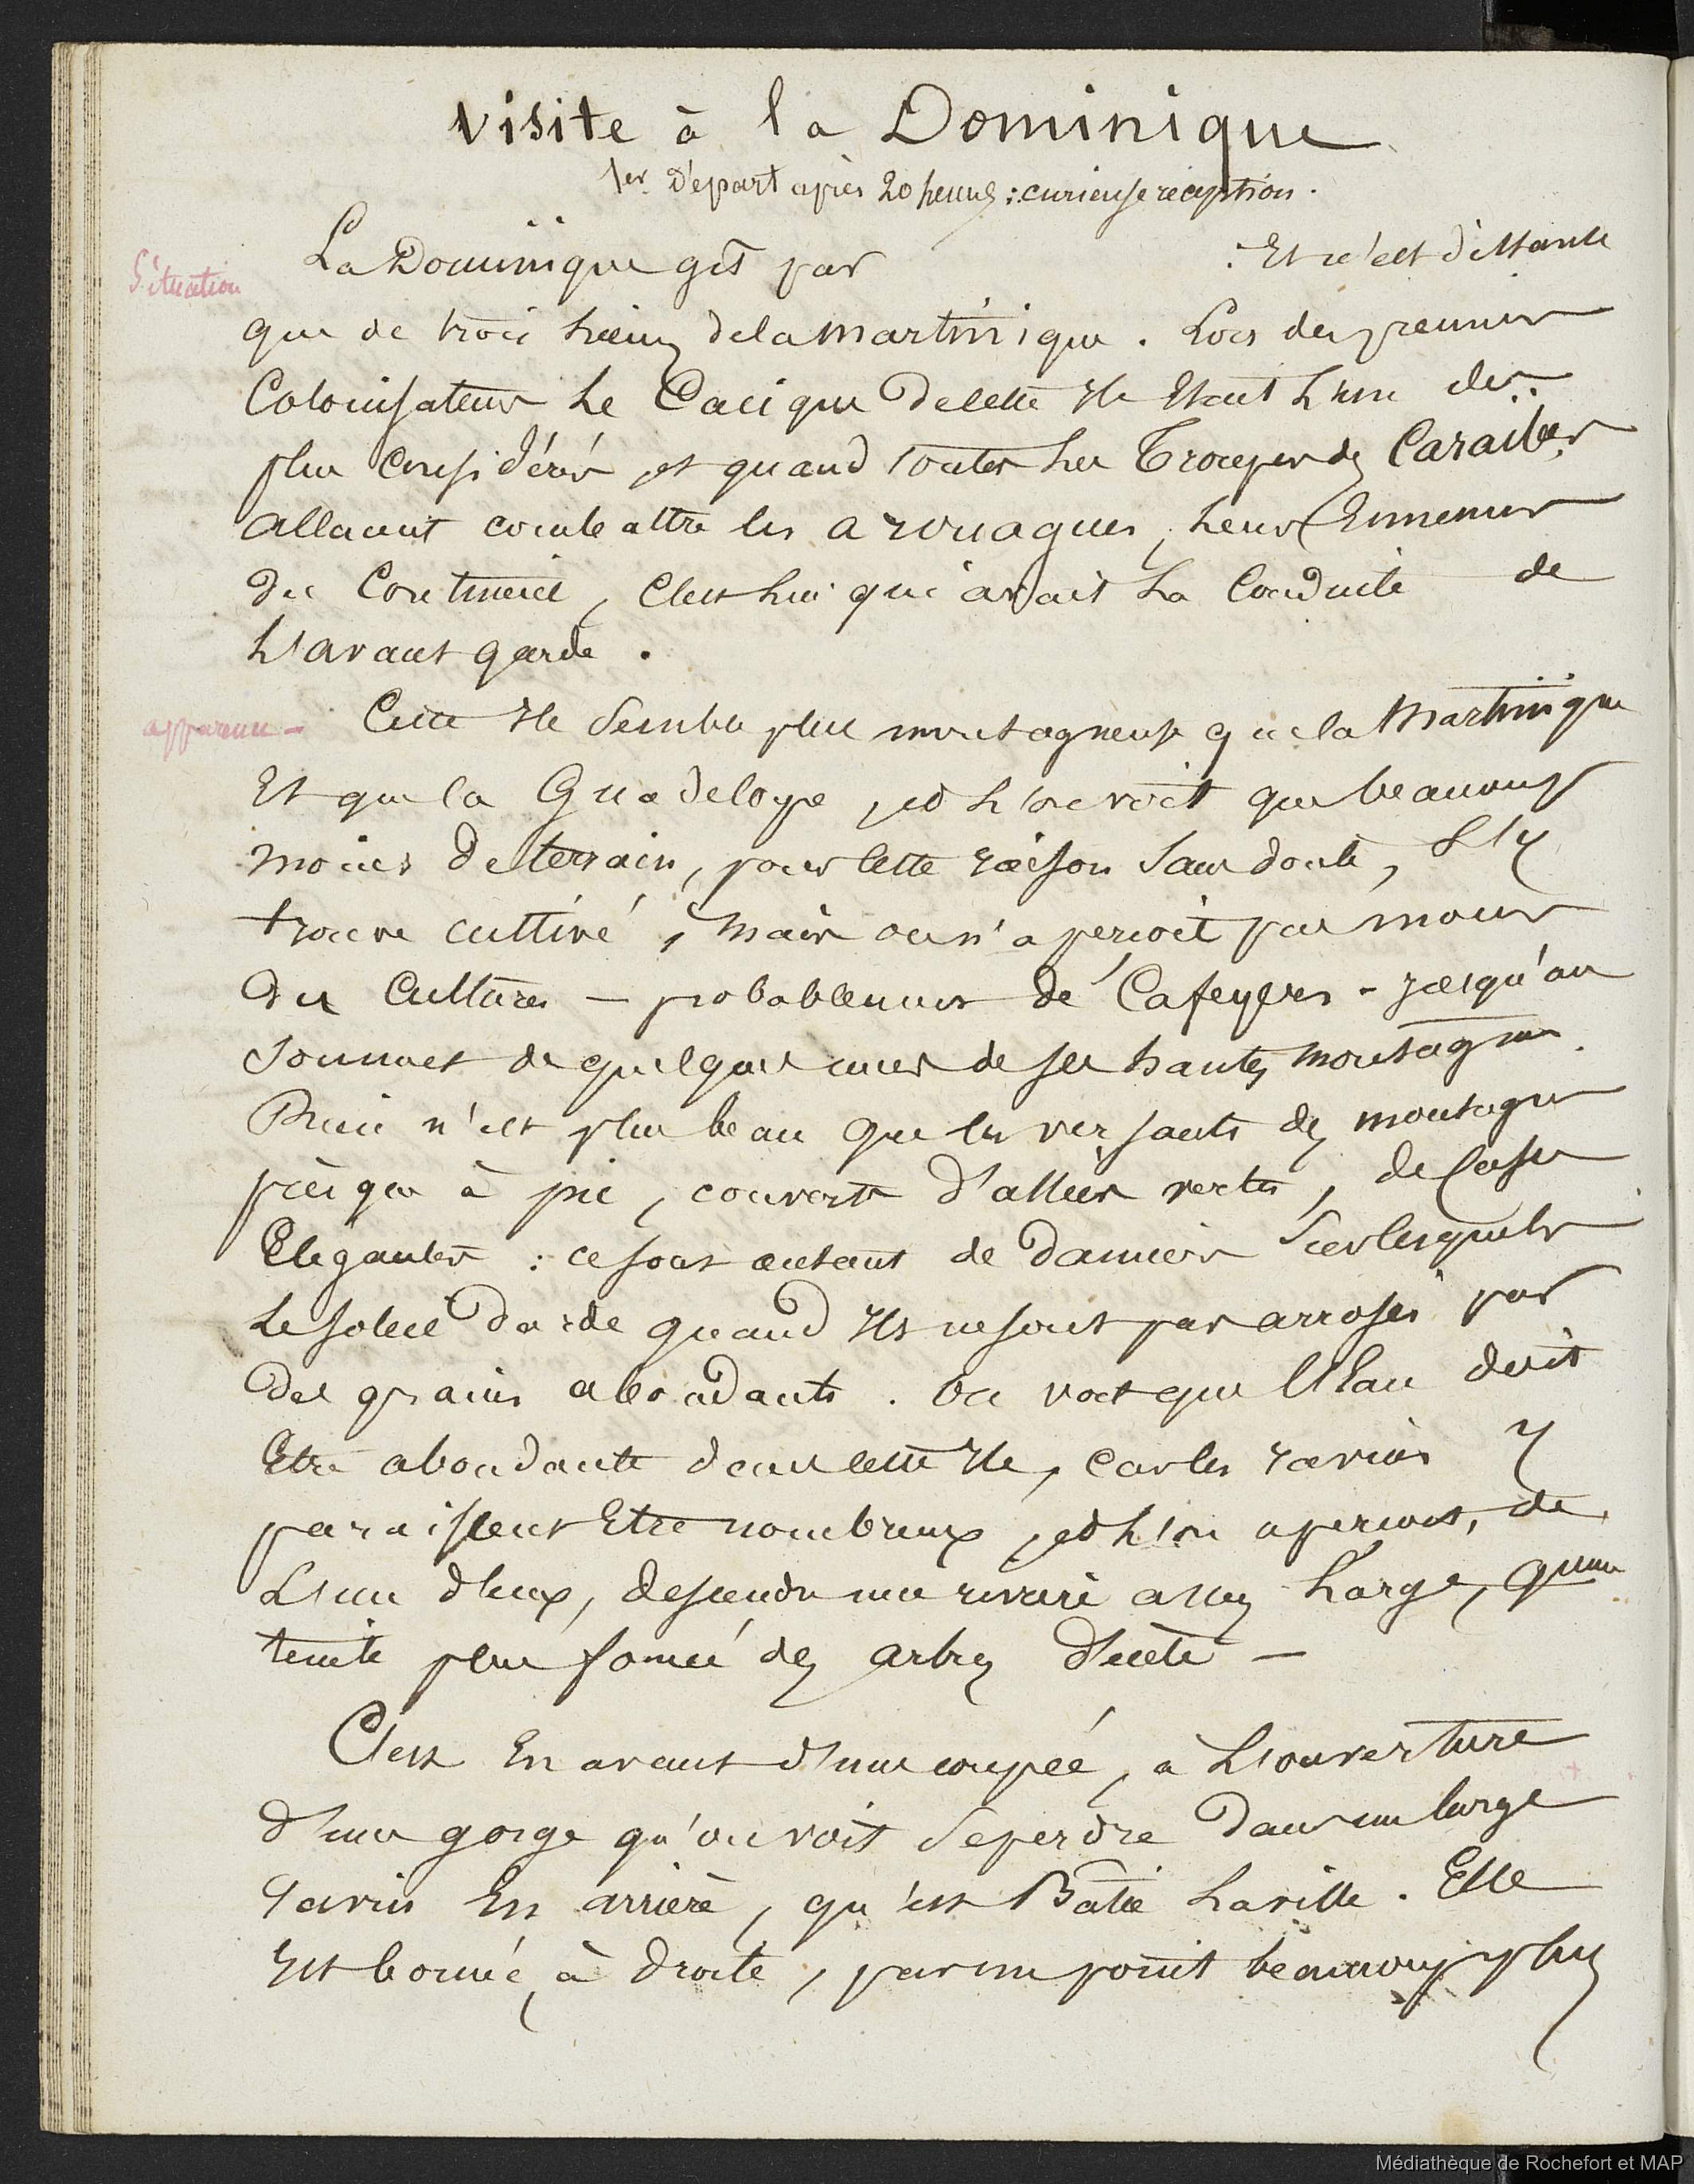 Visite à la Dominique
1er Départ après 20 heures : curieuse réception.
Situation
La Dominique gît par . Et n'est distante
que de trois lieues de la Martinique. Lors des premiers
Colonisateurs le Cacique de cette Ile Etait l'un des
plus considérés et quand toutes les Troupes des Caraïbes
allaient combattre les arouagues, leurs Ennemis
du Continent, c'est lui qui avait la Conduite de
l'avant garde.
apparence - Cette Ile semble plus montagneuse que la Martinique
Et que la Guadeloupe, et l'on voit que beaucoup
moins de terrain, pour cette raison sans doute, s'y
trouve cultivé, mais on n'aperçoit pas moins
des Cultures — probablement de Cafeyers - jusqu'au
sommet de quelques unes de ses hautes montagnes.
Rien n'est plus beau que les versants des montagnes
presque à pic, couverts d'allées vertes, de Cases
Elégantes : ce sont autant de Damiers sur lesquels
le soleil darde quand Ils ne sont pas arrosés par
des grains abondants. On voit que l'Eau doit
Etre abondante dans cette Ile, car les ravins y
paraissent Etre nombreux, et l'on aperçoit, de
L'un d'eux, descendre une rivière assez large, qu'une
teinte plus foncée des arbres décèle —
C'est En avant d'une coupée, à l'ouverture
d'une gorge qu'on voit se perdre dans un large
ravin En arrière, qu'est Bâtie la ville. Elle
Est bornée, à droite, par un point beaucoup plus
Médiathèque de Rochefort et MAP